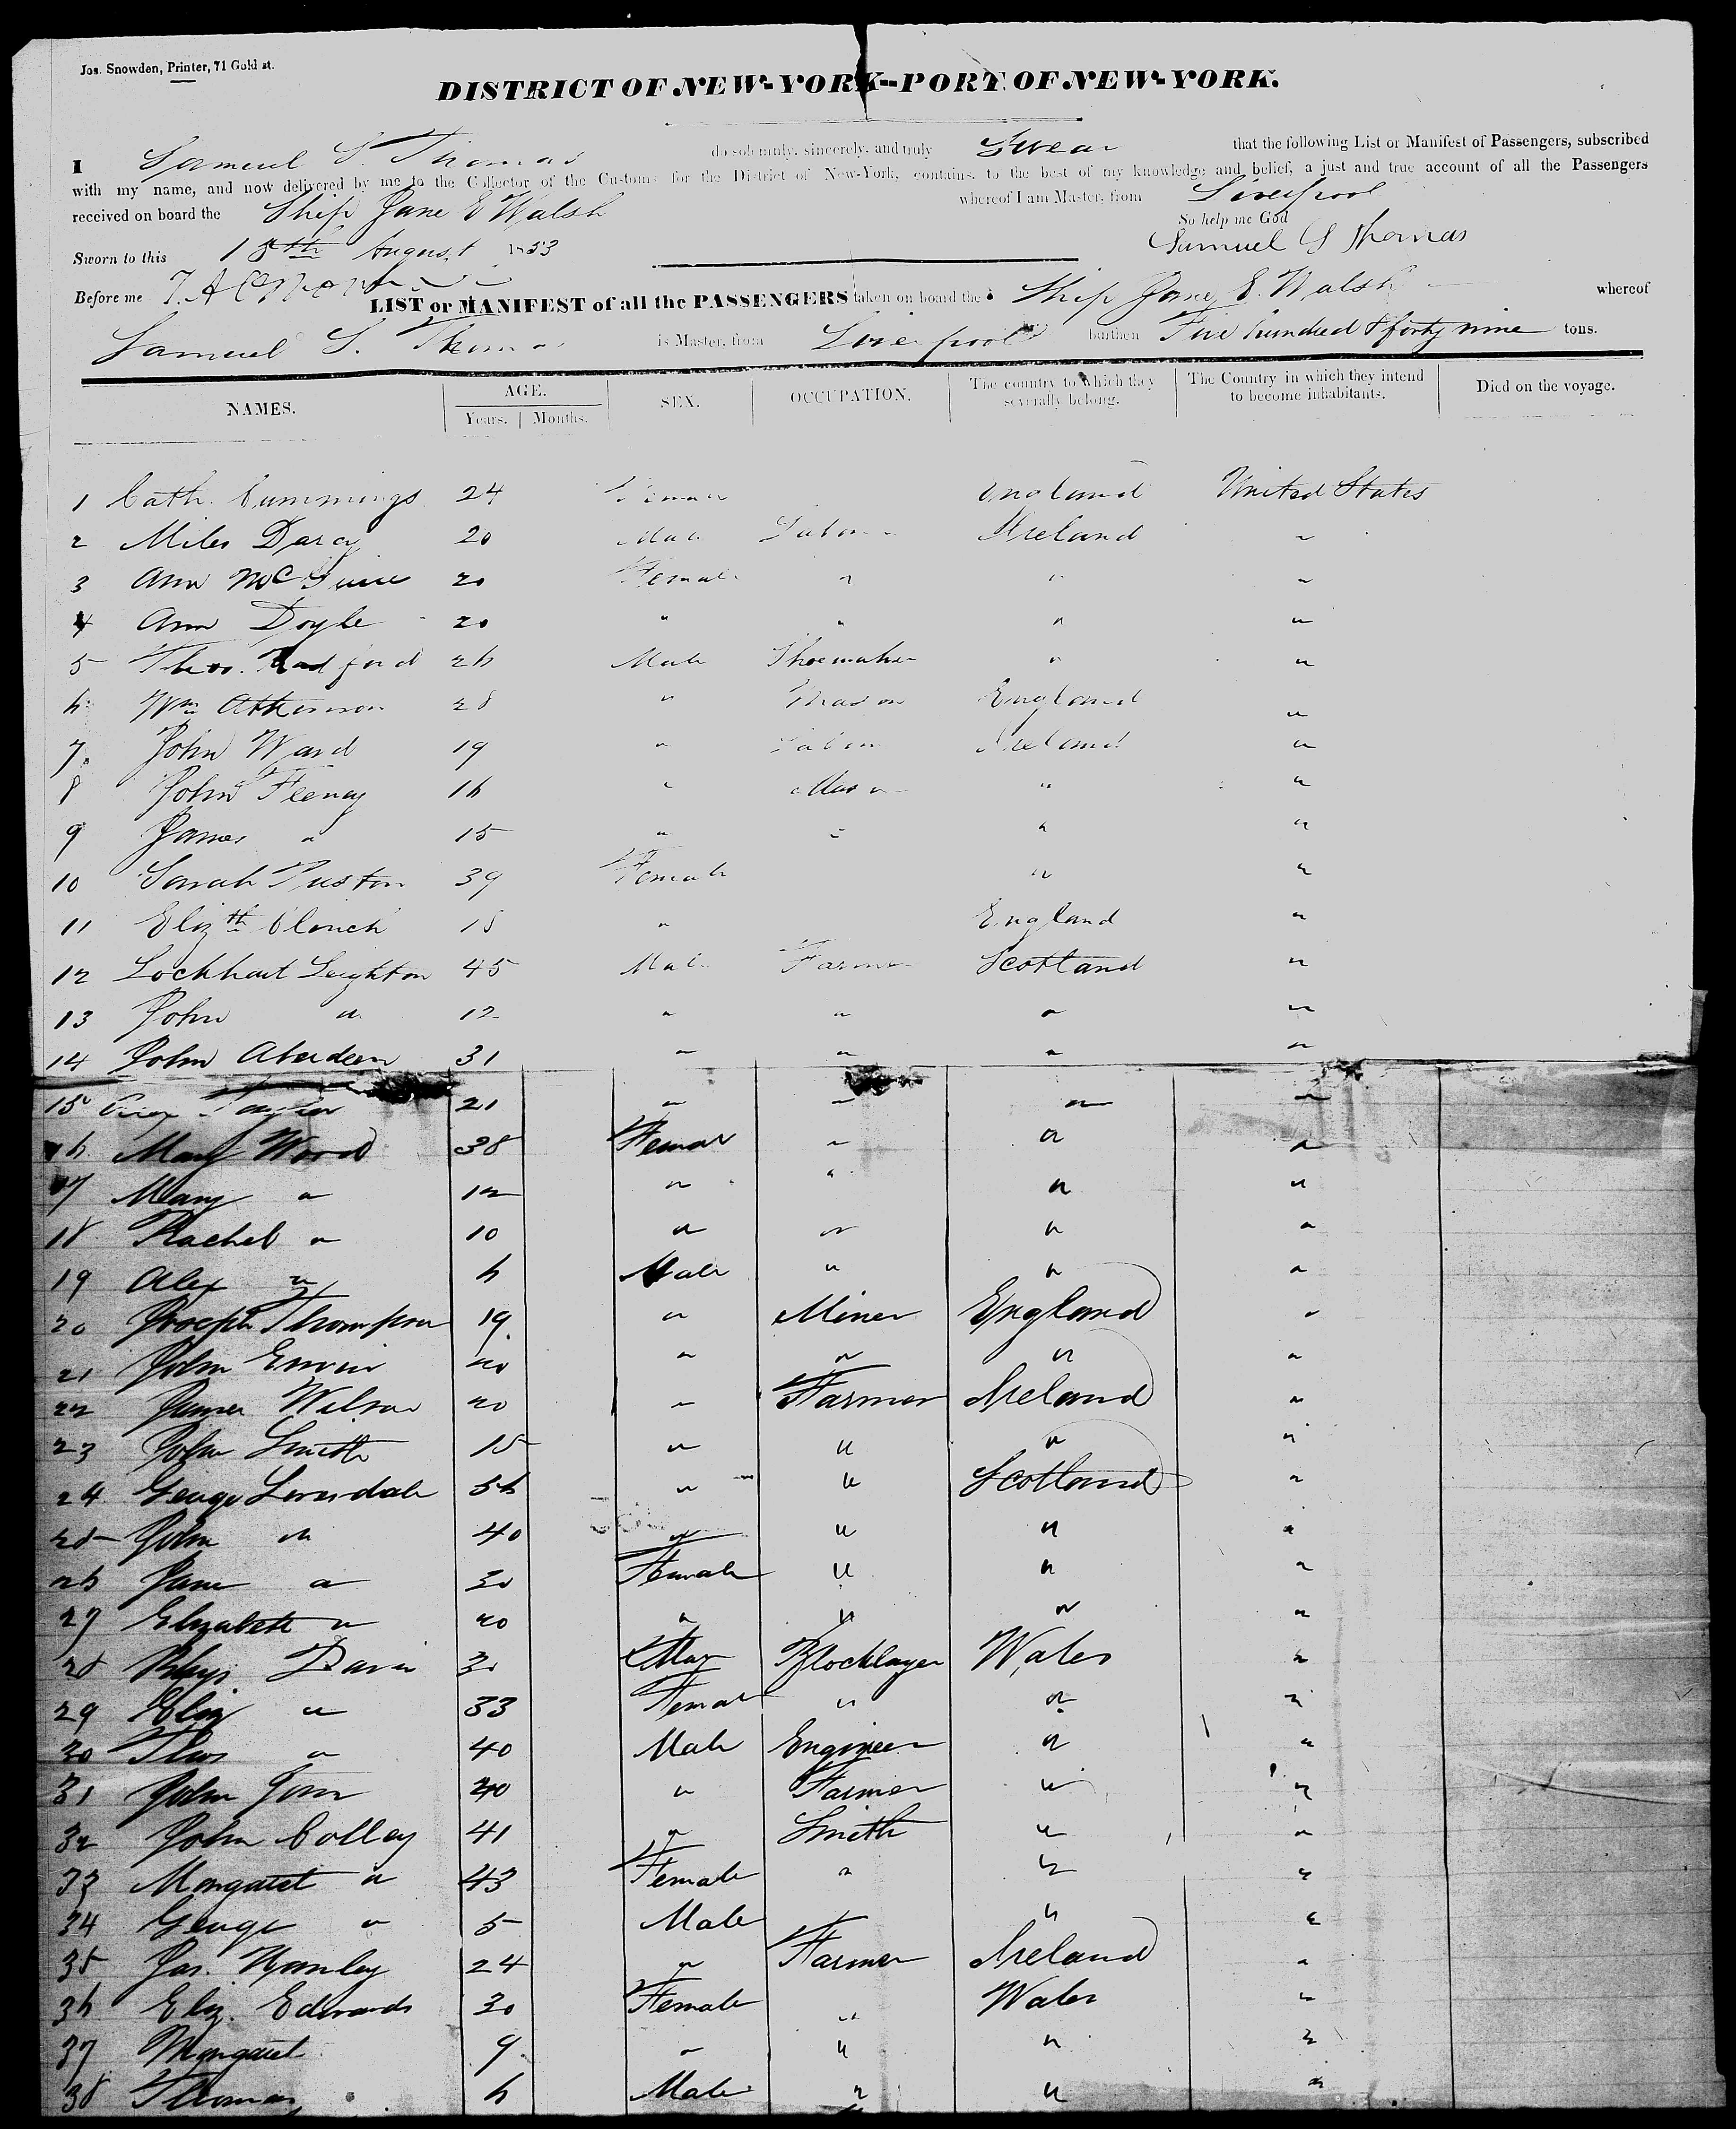 Jos. Snowden, Printer, 71 Gold st.
DISTRICT OF NEW-YORK--PORT OF NEW-YORK.
I Samuel S. Thomas do solemnly, sincerely, and truly Swear that the following List or Manifest of Passengers, subscribed
with my name, and now delivered by me to the Collector of the Customs for the District of New-York, contains, to the best of my knowledge and belief, a just and true account of all the Passengers
received on board the Ship Jane E Walsh whereof I am Master, from Liverpool
So help me God
Sworn to this 18th August 1853 Samuel S Thomas
Before me
LIST or MANIFEST of all the PASSENGERS taken on board the Ship Jane E. Walsh whereof
Samuel S. Thomas is Master, from Liverpool burthen Five hundred & forty nine tons.
NAMES. AGE. Years. Months. SEX. OCCUPATION. The country to which they severally belong. The Country in which they intend to become inhabitants. Died on the voyage.
1 Cath. Cummings 24 Female England United States
2 Miles Darcy 20 Male Labor Ireland "
3 Ann 20 Female " " "
4 Ann Doyle 20 " " " "
5 Thos. Radford 26 Male Shoemaker " "
6 Wm Atkinson 28 " Mason England "
7 John Ward 19 " Labor Ireland "
8 John Feeney 16 " Mason " "
9 James " 15 " " " "
10 Sarah 39 Female " "
11 Elizth Clinch 18 " England "
12 Lockhart Leighton 45 Male Farmer Scotland "
13 John " 12 " " " "
14 John Aberdeen 31 " " " "
15 Taylor 21 " " " "
16 Mary Wood 38 Female " " "
17 Mary " 12 " " " "
18 Rachel " 10 " " " "
19 Alex " 6 Male " " "
20 Joseph Thompson 19 " Miner England "
21 John 20 " " " "
22 James Wilson 20 " Farmer Ireland "
23 John Smith 15 " " " "
24 George Lonsdale 56 " " Scotland "
25 John " 40 " " " "
26 Jane " 30 Female " " "
27 Elizabeth " 20 " " " "
28 Davis 30 Male Wales "
29 Eliz " 33 Female " " "
30 Thos " 40 Male Engineer " "
31 John 20 " Farmer " "
32 John Colley 41 " Smith " "
33 Margaret " 43 Female " " "
34 George " 5 Male " " "
35 Jas. 24 " Farmer Ireland "
36 Eliz. Edwards 30 Female " Wales "
37 Margaret 9 " " " "
38 Thomas 6 Male " " "